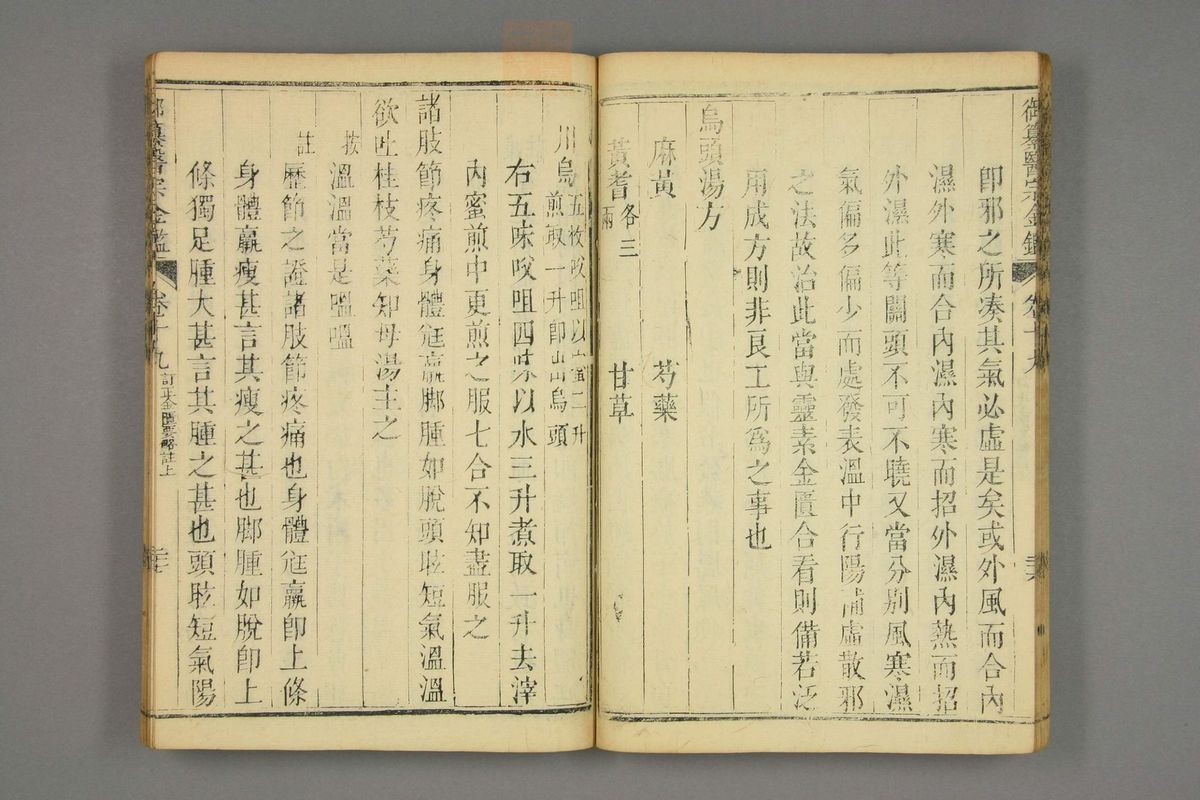 御纂醫宗金鑑 卷十九
卽邪之所凑其氣必虛是矣或外風而合內
濕外寒而合內濕內寒而招外濕內熱而招
外濕此等關頭不可不曉又當分別風寒濕
氣偏多偏少而處發表溫中行陽補虛散邪
之法故治此當與靈素金匱合看則備若泛
用成方則非良工所爲之事也
烏頭湯方
麻黃 芍藥
黃耆各三兩 甘草
川烏五枚㕮咀以蜜二升煎取一升卽出烏頭
右五味㕮咀四味以水三升煮取一升去滓
內蜜煎中更煎之服七合不知盡服之
諸肢節疼痛身體尫羸脚腫如脫頭眩短氣溫溫
欲吐桂枝芍藥知母湯主之
按 溫溫當是嗢嗢
註 歷節之證諸肢節疼痛也身體尫羸卽上條
身體羸瘦甚言其瘦之甚也脚腫如脫卽上
條獨足腫大甚言其腫之甚也頭眩短氣陽
御纂醫宗金鑑 卷十九 訂正金匱要略註上